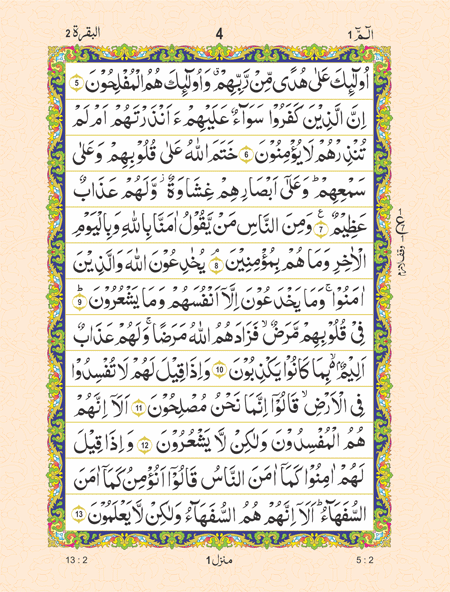 الٓمّٓ ١
4
البقرة 2
اُولٰٓئِكَ عَلٰى هُدًى مِّنْ رَّبِّهِمْ ۗ وَاُولٰٓئِكَ هُمُ الْمُفْلِحُوْنَ 5
اِنَّ الَّذِيْنَ كَفَرُوْا سَوَآءٌ عَلَيْهِمْ ءَاَنْذَرْتَهُمْ اَمْ لَمْ
تُنْذِرْهُمْ لَا يُؤْمِنُوْنَ 6 خَتَمَ اللّٰهُ عَلٰى قُلُوْبِهِمْ وَعَلٰى
سَمْعِهِمْ ؕ وَعَلٰٓى اَبْصَارِهِمْ غِشَاوَةٌ ؗ وَّلَهُمْ عَذَابٌ
عَظِيْمٌ 7 وَمِنَ النَّاسِ مَنْ يَّقُوْلُ اٰمَنَّا بِاللّٰهِ وَبِالْيَوْمِ
الْاٰخِرِ وَمَا هُمْ بِمُؤْمِنِيْنَ 8 يُخٰدِعُوْنَ اللّٰهَ وَالَّذِيْنَ
اٰمَنُوْا ۚ وَمَا يَخْدَعُوْنَ اِلَّاۤ اَنْفُسَهُمْ وَمَا يَشْعُرُوْنَ 9
فِىْ قُلُوْبِهِمْ مَّرَضٌ ۙ فَزَادَهُمُ اللّٰهُ مَرَضًا ۚ وَلَهُمْ عَذَابٌ
اَلِيْمٌ ۙ بِمَا كَانُوْا يَكْذِبُوْنَ 10 وَاِذَا قِيْلَ لَهُمْ لَا تُفْسِدُوْا
فِى الْاَرْضِ ۙ قَالُوْۤا اِنَّمَا نَحْنُ مُصْلِحُوْنَ 11 اَلَاۤ اِنَّهُمْ
هُمُ الْمُفْسِدُوْنَ وَلٰكِنْ لَّا يَشْعُرُوْنَ 12 وَاِذَا قِيْلَ
لَهُمْ اٰمِنُوْا كَمَاۤ اٰمَنَ النَّاسُ قَالُوْۤا اَنُؤْمِنُ كَمَاۤ اٰمَنَ
السُّفَهَآءُ ؕ اَلَاۤ اِنَّهُمْ هُمُ السُّفَهَآءُ وَلٰكِنْ لَّا يَعْلَمُوْنَ 13
وقف لازم
5 : 2
منزل 1
13 : 2